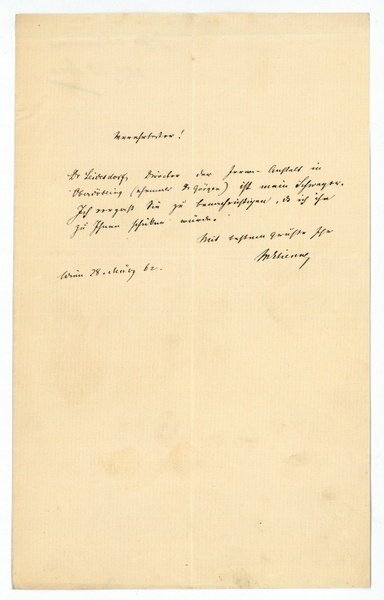 Verehrtester!
Dr Leidesdorf, Director der Irren-Anstalt in
Oberdöbling (ehemals Dr Görgen) ist mein Schwager.
Ich vergaß Sie zu benachrichtigen, da ich ihn
zu Ihnen schicken würde.
Mit bestem Gruße Ihr
Wien 28. März 62.